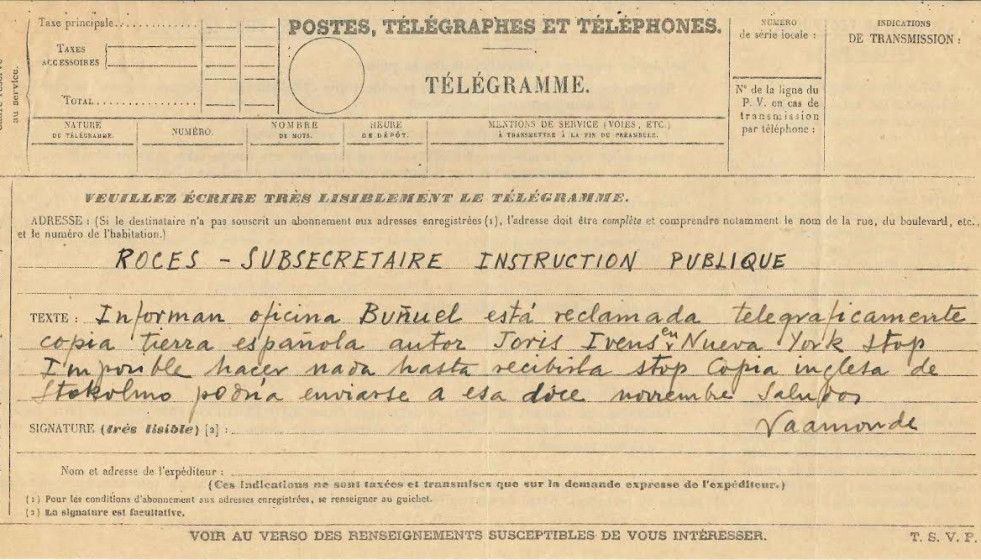 Cadre réservé
au service.
Taxe principale
TAXES
ACCESSOIRES
TOTAL
POSTES, TÉLÉGRAPHES ET TÉLÉPHONES.
TÉLÉGRAMME.
NUMÉRO
de série locale :
N° de la ligne du
P. V. en cas de
transmission
par téléphone :
INDICATIONS
DE TRANSMISSION :
NATURE
DU TÉLÉGRAMME.
NUMÉRO.
NOMBRE
DE MOTS.
HEURE
DE DÉPÔT.
MENTIONS DE SERVICE (VOIES, ETC.)
À TRANSMETTRE À LA FIN DU PRÉAMBULE.
VEUILLEZ ÉCRIRE TRÈS LISIBLEMENT LE TÉLÉGRAMME.
ADRESSE : (Si le destinataire n'a pas souscrit un abonnement aux adresses enregistrées (1), l'adresse doit être complète et comprendre notamment le nom de la rue, du boulevard, etc.,
et le numéro de l'habitation.)
ROCES - SUBSECRETAIRE INSTRUCTION PUBLIQUE
TEXTE : Informan oficina Buñuel está reclamada telegraficamente
copia tierra española autor Joris Ivens en Nueva York stop
Imposible hacer nada hasta recibirla stop Copia inglesa de
Stokolmo podría enviarse a esa doce noviembre Saludos
SIGNATURE (très lisible) [2] : Vaamonde
Nom et adresse de l'expéditeur :
(Ces indications ne sont taxées et transmises que sur la demande expresse de l'expéditeur.)
(1) Pour les conditions d'abonnement aux adresses enregistrées, se renseigner au guichet.
(2) La signature est facultative.
VOIR AU VERSO DES RENSEIGNEMENTS SUSCEPTIBLES DE VOUS INTÉRESSER.
T. S. V. P.